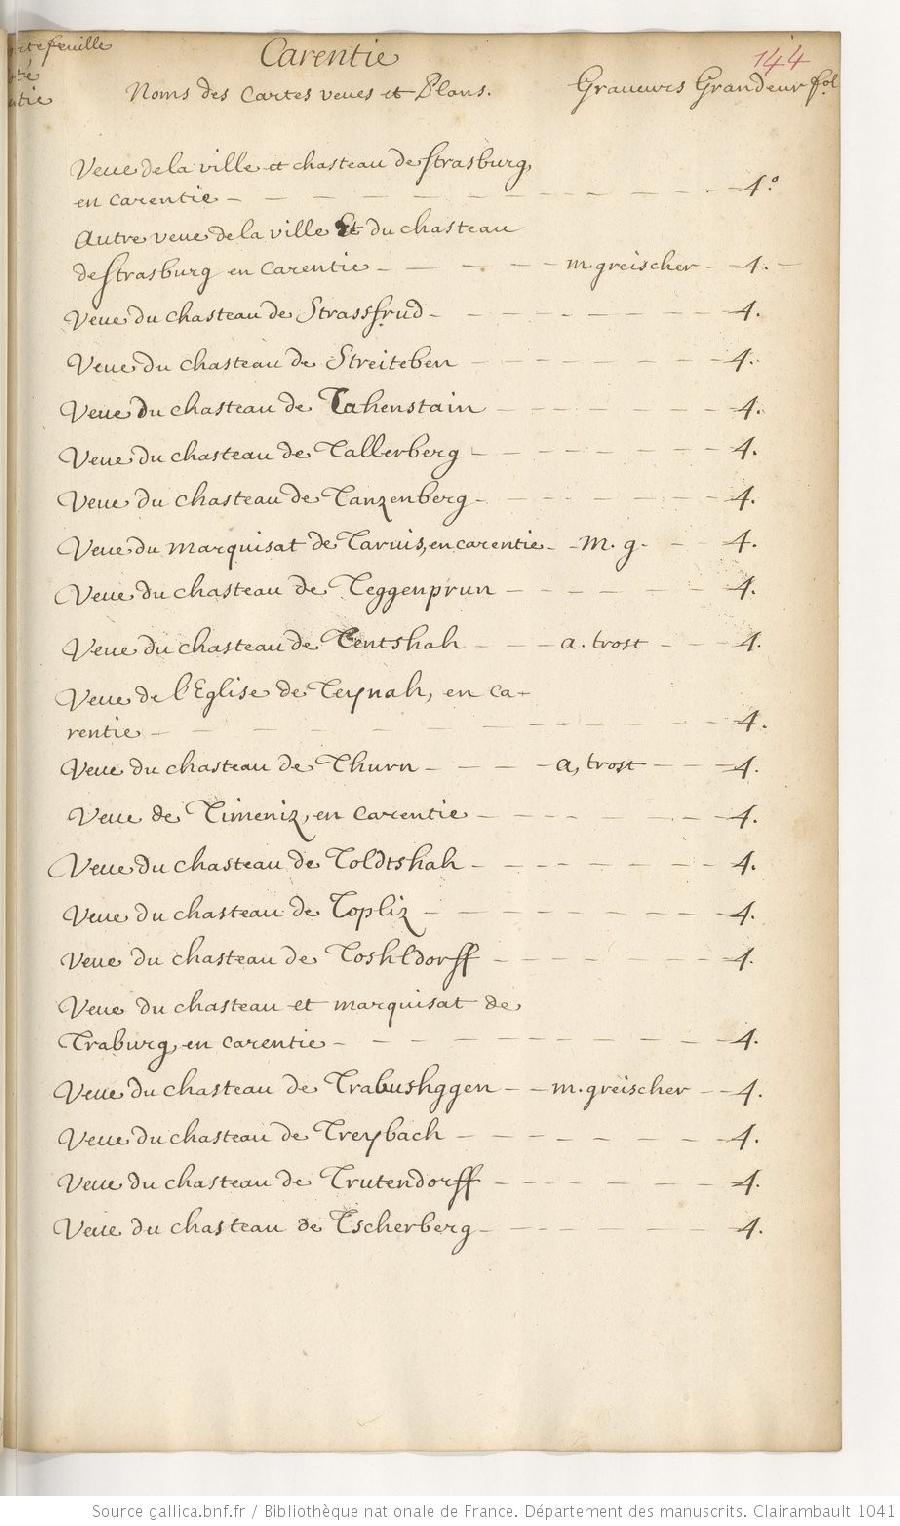 Carentie
144
Noms des Cartes veues et Plans. Graveurs Grandeur fol
Veue de la ville et chasteau de Strasburg,
en carentie - 4.º
Autre veue de la ville Et du chasteau
de Strasburg en carentie - m. greischer - 4. -
Veue du chasteau de Strassfrud - 4.
Veue du chasteau de Streiteben - 4.
Veue du chasteau de Tahenstain - 4.
Veue du chasteau de Tallerberg - 4.
Veue du chasteau de Tanzenberg - 4.
Veue du marquisat de Tarvis, en carentie - m. g. - 4.
Veue du chasteau de Teggenprun - 4.
Veue du chasteau de Tentshah - a. trost - 4.
Veue de l'Eglise de Teynah, en ca-
rentie - 4.
Veue du chasteau de Thurn - a, trost - 4.
Veue de Timeniz, en carentie - 4.
Veue du chasteau de Toldtshah - 4.
Veue du chasteau de Topliz - 4.
Veue du chasteau de Toshldorff - 4.
Veue du chasteau et marquisat de
Traburg, en carentie - 4.
Veue du chasteau de Trabushggen - m. greischer - 4.
Veue du chasteau de Treybach - 4.
Veue du chasteau de Trutendorff - 4.
Veue du chasteau de Tscherberg - 4.
Source gallica.bnf.fr / Bibliothèque nationale de France. Département des manuscrits. Clairambault 1041